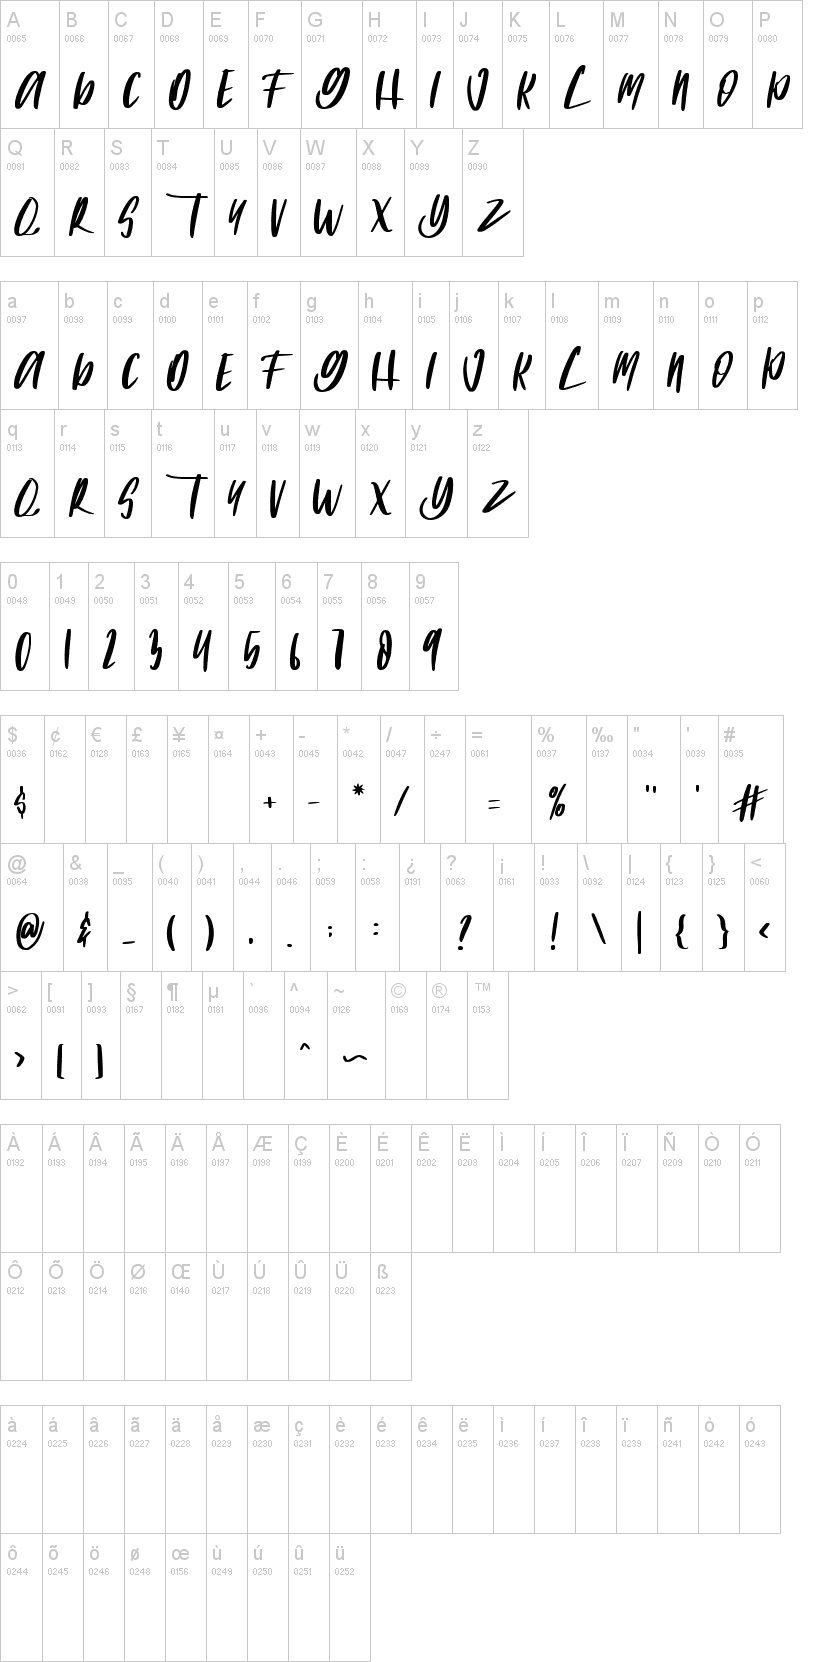 A B C D E F G H I J K L M N O P
0065 0066 0067 0068 0069 0070 0071 0072 0073 0074 0075 0076 0077 0078 0079 0080
a b C D E F g H I J K L m n O P
Q R S T U V W X Y Z
0081 0082 0083 0084 0085 0086 0087 0088 0089 0090
Q R S T U V W X Y Z
a b c d e f g h i j k l m n o p
0097 0098 0099 0100 0101 0102 0103 0104 0105 0106 0107 0108 0109 0110 0111 0112
a b C D E F g H I J K L m n O P
q r s t u v w x y z
0113 0114 0115 0116 0117 0118 0119 0120 0121 0122
Q R S T U V W X Y Z
0 1 2 3 4 5 6 7 8 9
0048 0049 0050 0051 0052 0053 0054 0055 0056 0057
0 1 2 3 4 5 6 7 8 9
$ ¢ € £ ¥ ¤ + - * / ÷ = % ‰ " ' #
0036 0162 0128 0163 0165 0164 0043 0045 0042 0047 0247 0061 0037 0137 0034 0039 0035
$ + - * / = % " ' #
@ & _ ( ) , . ; : ¿ ? ¡ ! \ | { } <
0064 0038 0095 0040 0041 0044 0046 0059 0058 0191 0063 0161 0033 0092 0124 0123 0125 0060
@ & _ ( ) , . ; : ? ! \ | { } <
> [ ] § ¶ µ ` ^ ~ © ® ™
0062 0091 0093 0167 0182 0181 0096 0094 0126 0169 0174 0153
> [ ] ^ ~
À Á Â Ã Ä Å Æ Ç È É Ê Ë Ì Í Î Ï Ñ Ò Ó
0192 0193 0194 0195 0196 0197 0198 0199 0200 0201 0202 0203 0204 0205 0206 0207 0209 0210 0211
Ô Õ Ö Ø Œ Ù Ú Û Ü ß
0212 0213 0214 0216 0140 0217 0218 0219 0220 0223
à á â ã ä å æ ç è é ê ë ì í î ï ñ ò ó
0224 0225 0226 0227 0228 0229 0230 0231 0232 0233 0234 0235 0236 0237 0238 0239 0241 0242 0243
ô õ ö ø œ ù ú û ü
0244 0245 0246 0248 0156 0249 0250 0251 0252